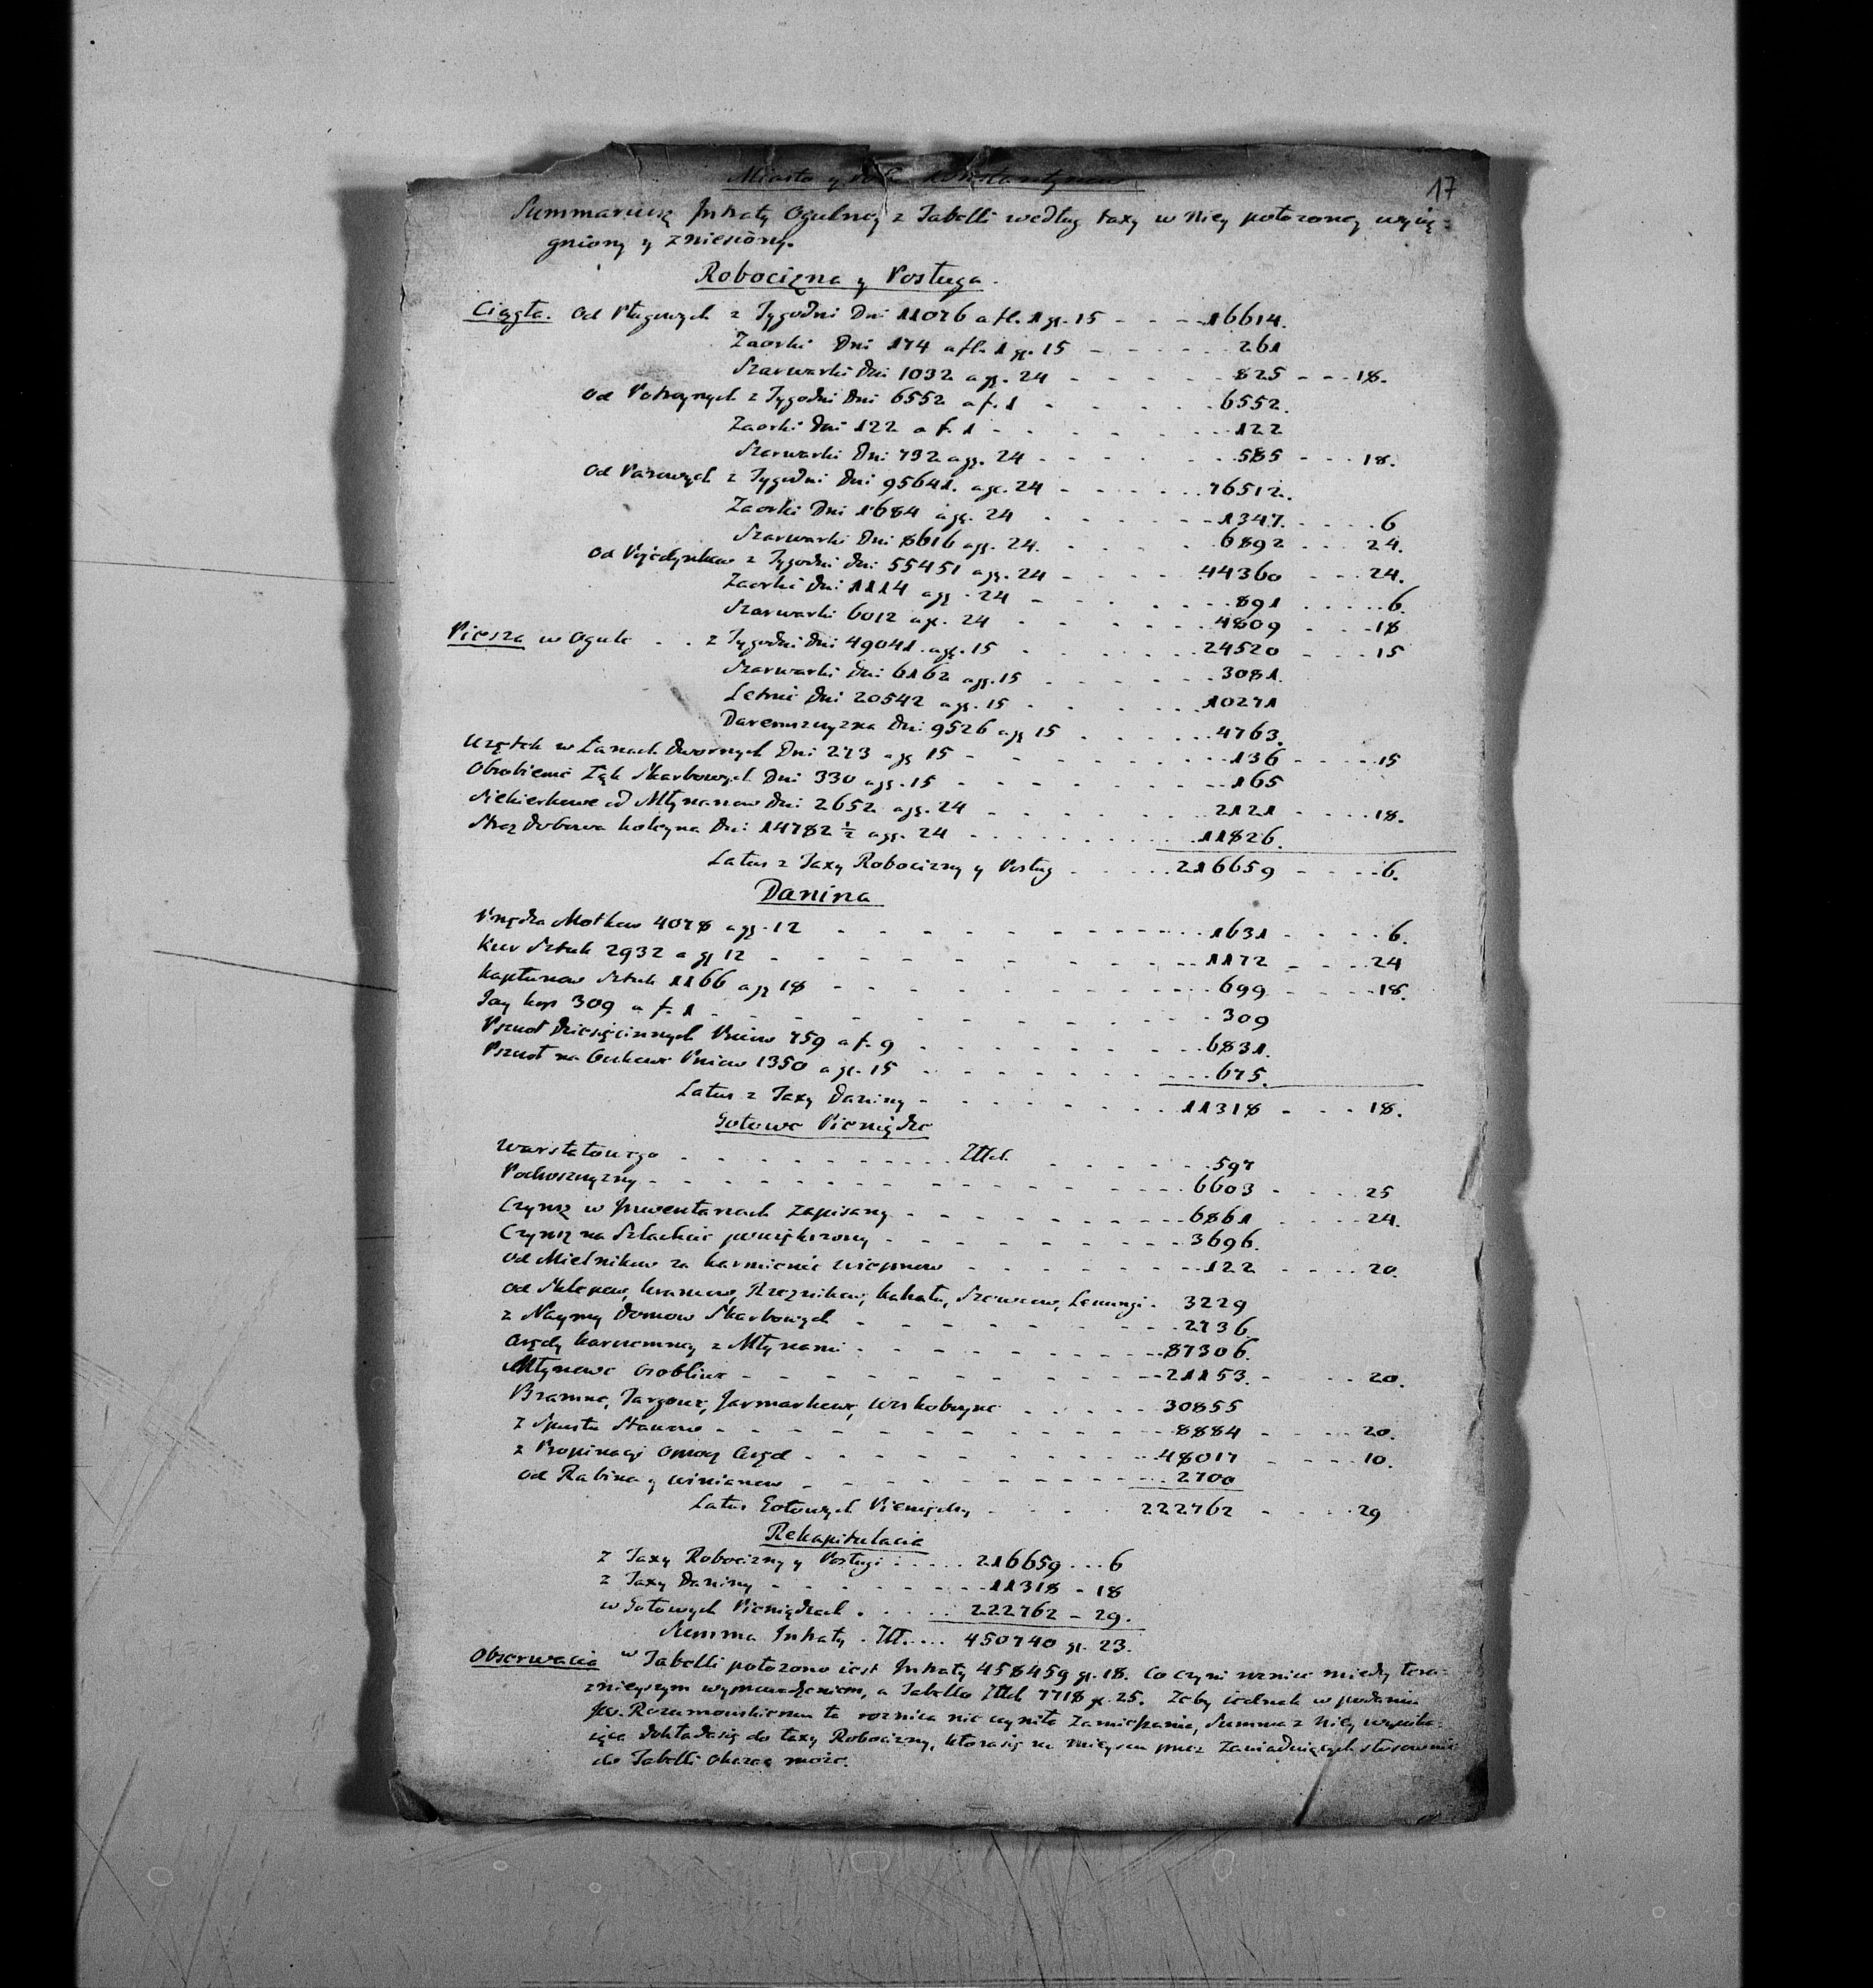 Miasto y
17
Summariusz Intraty Ogulney z Tabelli według taxy w Niey położoney wycią=
gniony y zniesiony.
Robocizna y Posługa.
Ciągła. Od Pługowych z Tygodni Dni 11076 a fl. 1 gr. 15 - - - 16614.
Zaorki Dni 174 a fl. 1 gr. 15 - - - 261
Szarwarki Dni 1032 a gr. 24 - - - 825 - - - 18.
Od Potroynych z Tygodni Dni 6552 a f. 1 - - - 6552.
Zaorki Dni 122 a f. 1 - - - 122
Szarwarki Dni 732 a gr. 24 - - - 585 - - - 18.
Od Parowych z Tygodni Dni 95641. a gr. 24 - - - 76512.
Zaorki Dni 1684 a gr. 24 - - - 1347. - - - 6
Szarwarki Dni 8616 a gr. 24. - - - 6892 - - - 24.
Od Pojedynkow z Tygodni Dni 55451 a gr. 24 - - - 44360 - - - 24.
Zaorki Dni 1114 a gr. 24 - - - 891 - - - 6.
Szarwarki 6012 a gr. 24 - - - 4809 - - - 18
Piesza w Ogule . . z Tygodni Dni 49041. a gr. 15 - - - 24520 - - - 15
Szarwarki Dni 6162 a gr. 15 - - - 3081.
Letnie Dni 20542 a gr. 15 - - - 10271
Daremszczyzna Dni 9526 a gr 15 - - - 4763.
w Łanach Dwornych Dni 273 a gr 15 - - - 136 - - - 15
Obrobienie Łąk Skarbowych Dni 330 a gr. 15 - - - 165
Siekierkowe od Młynarzow Dni 2652 a gr. 24 - - - 2121 - - - 18.
Stroż Dobowa koleyna Dni 14782 ½ a gr. 24 - - - 11826.
Latus z Taxy Robocizny y Posług - - - 216659 - - - 6.
Danina
Przędza Motkow 4078 a gr. 12 - - - 1631 - - - 6.
Kur Sztuk 2932 a gr 12 - - - 1172 - - - 24
Kapłonow Sztuk 1166 a gr 18 - - - 699 - - - 18.
Jay kop 309 a f. 1 - - - 309
Pszczoł Dziesięcinnych Pniow 759 a f. 9 - - - 6831.
Pszczoł na Oczkowe Pniow 1350 a gr. 15 - - - 675.
Latus z Taxy Daniny - - - 11318 - - - 18.
Gotowe Pieniądze
Warstatowego - - - Złłch - - - 597
Podwoszczyzny - - - 6603 - - - 25
Czynsz w Inwentarzach zapisany - - - 6861 - - - 24.
Czynsz na Szlachcie powiększony - - - 3696.
Od Mielnikow za karmienie wieprzow - - - 122 - - - 20.
Od Sklepow, kramow, Rzeznikow, kahału, Szewcow, - 3229
z Naymy Domow Skarbowych - - - 2736.
Arędy karczemney z Młynami - - - 87306.
Młynowe osobliwe - - - 21153. - - - 20.
Bramne, Targowe, Jarmarkowe, Woskoboyne - - - 30855
z Spustu Stawow - - - 8884 - - - 20.
z Propinacyi oprocz Aręd - - - 48017 - - - 10.
Od Rabina y winiarow - - - 2700
Latus Gotowych Pieniędzy - - - 222762 - - - 29
Rekapitulacia
z Taxy Robocizny y Posługi : . . . . 216659 . . . 6
z Taxy Daniny - - - 11318 - 18
w Gotowych Pieniądzach . - - - 222762 - 29.
Summa Intraty . Złł. . . . 450740 gr. 23.
Obserwacia w Tabelli położono iest Intraty 458459 gr. 18. Co czyni roznice miedzy tera=
znieyszym wyprowadzeniem, a Tabellą Złłch 7718 gr. 25. Żeby iednak w podaniu
JW. Rozumowskiemu ta roznica nie czyniła zamieszania, Summa z Niey wynika=
iąca dokłada się do taxy Robocizny, ktora się na mieyscu przez Zawiaduiących stosownie
do Tabelli okazać może.